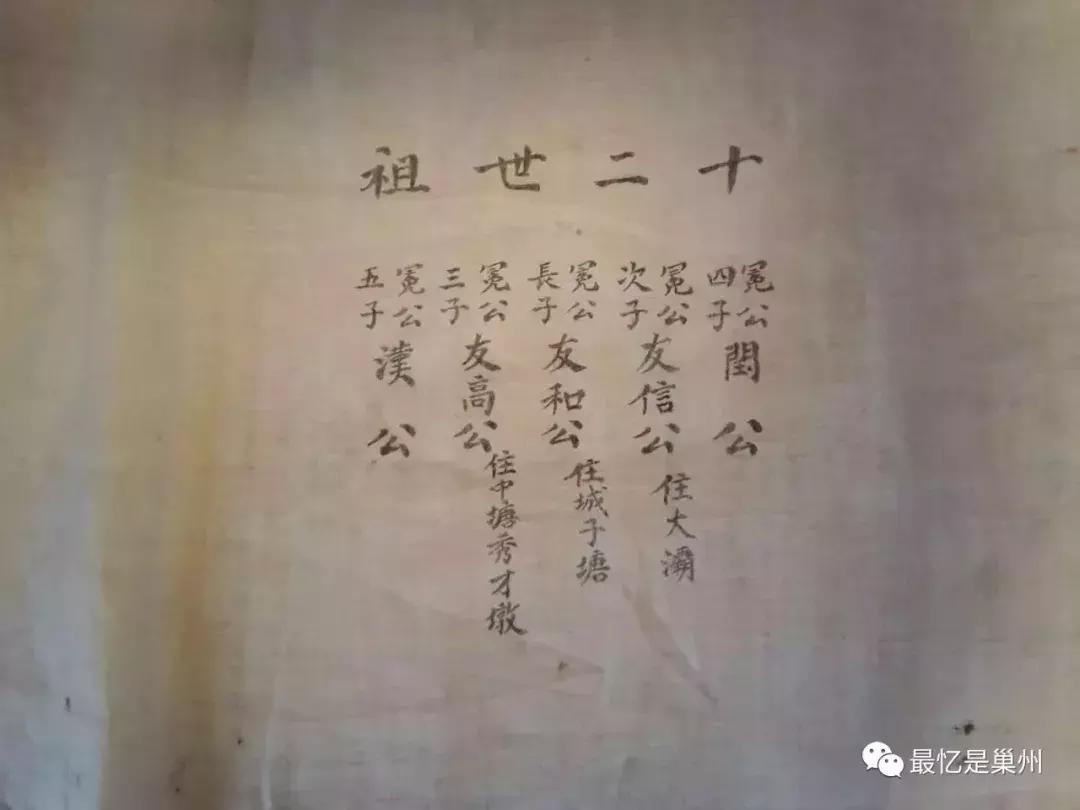 十二世祖
冕公四子閏公
冕公次子友信公住大灞
冕公長子友和公住城子塘
冕公三子友高公住中塘秀才墩
冕公五子漢公
最忆是巢州